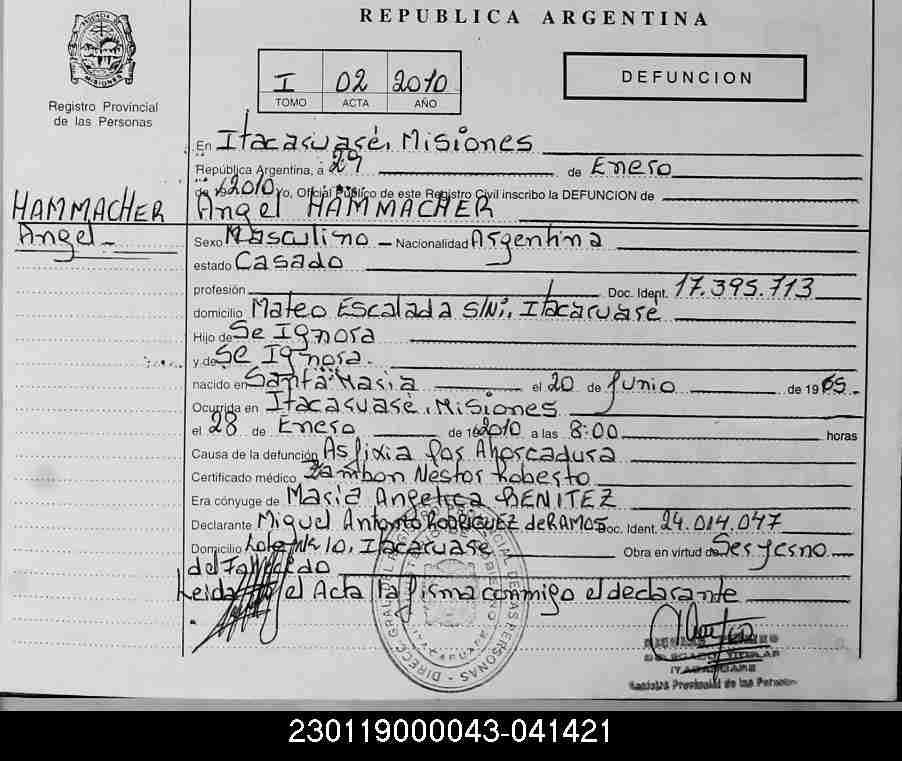 REPUBLICA ARGENTINA
PROVINCIA DE
MISIONES
Registro Provincial
de las Personas
I 02 2010
TOMO ACTA AÑO
DEFUNCION
En Itacaruaré, Misiones
República Argentina, a 29 de Enero
de 2010 Yo, Oficial Público de este Registro Civil inscribo la DEFUNCION de
HAMMACHER
Angel
Angel HAMMACHER
Sexo Masculino - Nacionalidad Argentina
estado Casado
profesión Doc. Ident. 17.395.713
domicilio Mateo Escalada S/Nº, Itacaruaré
Hijo de Se Ignora
y de Se Ignora.
nacido en Santa Maria el 20 de Junio de 1965.
Ocurrida en Itacaruaré, Misiones
el 28 de Enero de 2010 a las 8:00 horas
Causa de la defunción Asfixia Por Ahorcadura
Certificado médico Zambon Nestor Roberto
Era cónyuge de Maria Angelica BENITEZ
Declarante Miguel Antonio RODRIGUEZ de RAMOS Doc. Ident. 24.014.047
Domicilio Lote Nº 10, Itacaruare Obra en virtud de Ser yerno
del Fallecido
Leida el Acta la firma conmigo el declarante
DIRECC. GRAL. DE LAS PERSONAS
ITACARUARE
Registro Provincial de las Personas
230119000043-041421